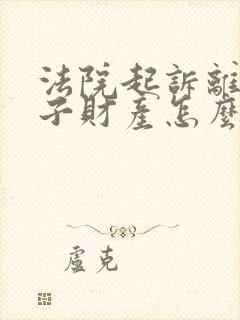 法院起訴離
子財產怎麼
盧克